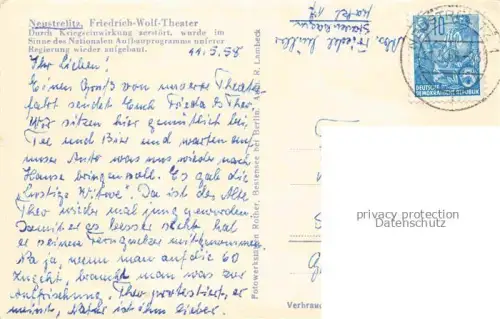 Neustrelitz, Friedrich-Wolf-Theater
Durch Kriegseinwirkung zerstört, wurde im
Sinne des Nationalen Aufbauprogramms unserer
Regierung wieder aufgebaut.
11.5.58
Ihr Lieben!
Einen Gruß von unserer Theater
fahrt sendet Euch Frieda & Theo
Wir sitzen hier gemütlich bei
Tee und Bier und warten auf
unser Auto was uns wieder nach
Hause bringen soll. Es gab die
„Lustige Witwe". Da ist der Alte
Theo wieder mal jung geworden.
Damit er es besser sieht hat
er seinen Ferngucker mitgenommen.
Na ja, wenn man auf die 60
zugeht, braucht man was zur
Auffrischung. Theo protestiert, er
meint, ist ihm lieber.
Abs. Frieda
DEUTSCHE
DEMOKRATISCHE REPUBLIK
Fotowerkstätten Rother, Bestensee bei Berlin, R. Lambeck
privacy protection
Datenschutz
Verbrau